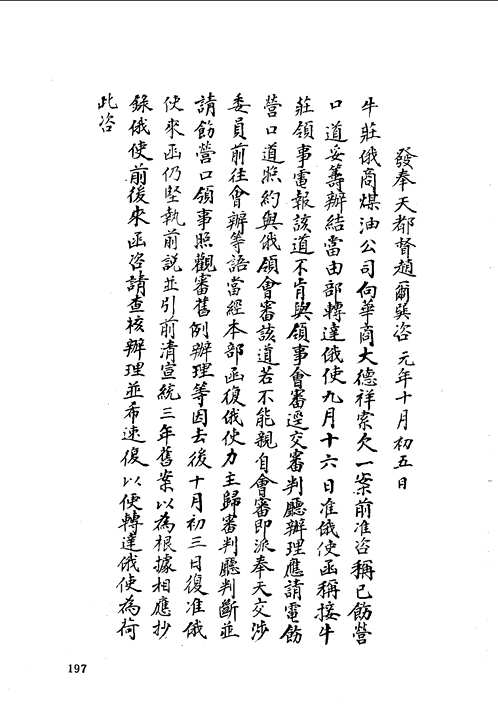 發奉天都督趙爾巽咨 元年十月初五日
牛莊俄商煤油公司向華商大德祥索欠一案前准咨稱已飭營
口道妥籌辦結當由部轉達俄使九月十六日准俄使函稱接牛
莊領事電報該道不肯與領事會審逕交審判廳辦理應請電飭
營口道照約與俄領會審該道若不能親自會審即派奉天交涉
委員前往會辦等語當經本部函復俄使力主歸審判廳判斷並
請飭營口領事照觀審舊例辦理等因去後十月初三日復准俄
使來函仍堅執前説並引前清宣統三年舊案以為根據相應抄
錄俄使前後來函咨請查核辦理並希速復以便轉達俄使為荷
此咨
197